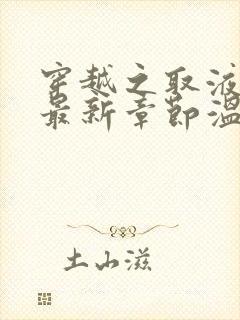 穿越之取液
最新章节温
土山滋